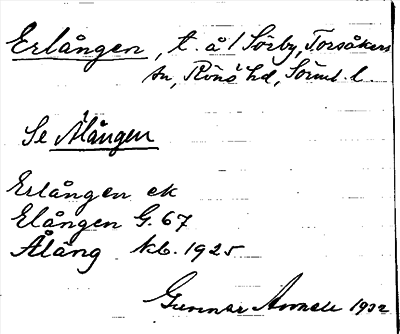 Erlången, t. å / Sörby, Torsåkers
sn, Rönö hd, Sörml. l.
Se Ålången
Erlången ek
Elången G. 67
Ålång Nb. 1925
Gunnar 1932